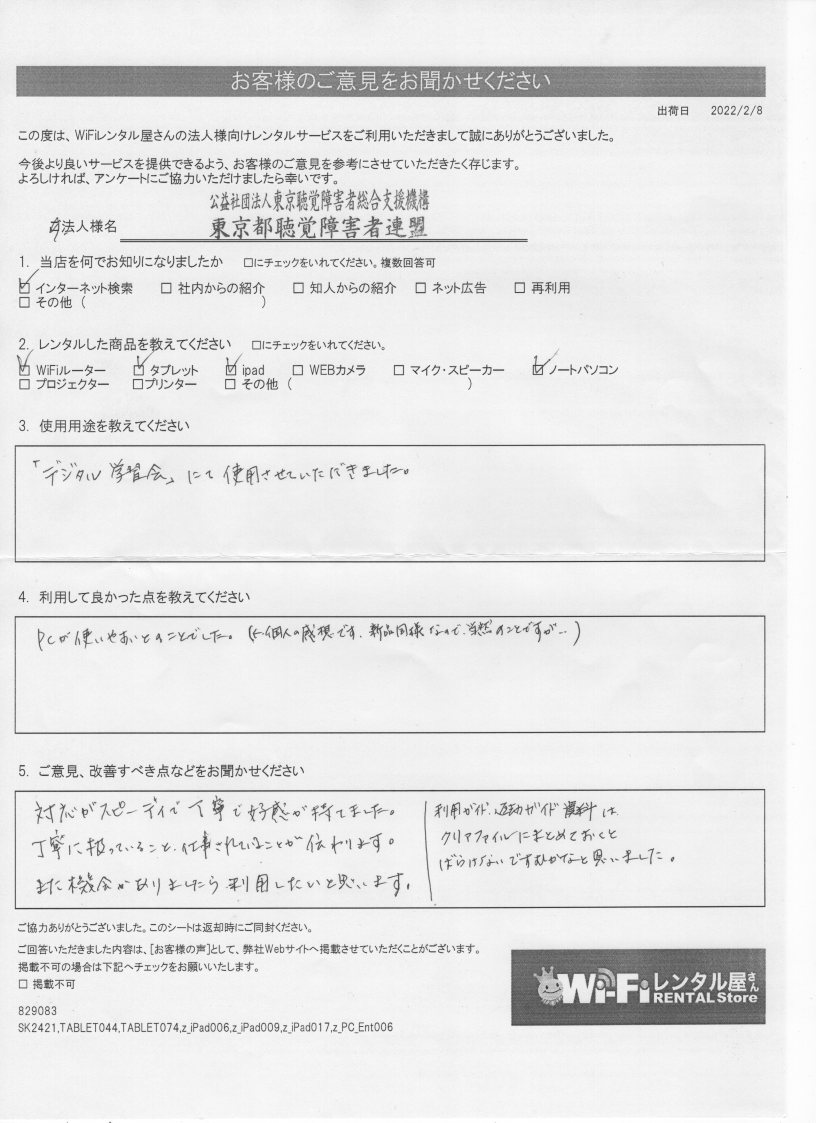 お客様のご意見をお聞かせください
出荷日 2022/2/8
この度は、WiFiレンタル屋さんの法人様向けレンタルサービスをご利用いただきまして誠にありがとうございました。
今後より良いサービスを提供できるよう、お客様のご意見を参考にさせていただきたく存じます。
よろしければ、アンケートにご協力いただけましたら幸いです。
公益社団法人東京聴覚障害者総合支援機構
法人様名 東京都聴覚障害者連盟
1. 当店を何でお知りになりましたか □にチェックをいれてください。複数回答可
☑ インターネット検索 □ 社内からの紹介 □ 知人からの紹介 □ ネット広告 □ 再利用
□ その他 ( )
2. レンタルした商品を教えてください □にチェックをいれてください。
☑ WiFiルーター ☑ タブレット ☑ ipad □ WEBカメラ □ マイク・スピーカー ☑ ノートパソコン
□ プロジェクター □プリンター □ その他 ( )
3. 使用用途を教えてください
「デジタル学習会」にて使用させていただきました。
4. 利用して良かった点を教えてください
PCが使いやすいとのことでした。(←個人の感想です。新品同様なので、当然のことですが…)
5. ご意見、改善すべき点などをお聞かせください
対応がスピーディで丁寧で好感が持てました。
丁寧に扱っていること、仕事されていることが伝わります。
また機会がありましたら利用したいと思います。
利用ガイド、返却ガイド は
クリアファイルにまとめておくと
ばらけないですむかなと思いました。
ご協力ありがとうございました。このシートは返却時にご同封ください。
ご回答いただきました内容は、[お客様の声]として、弊社Webサイトへ掲載させていただくことがございます。
掲載不可の場合は下記へチェックをお願いいたします。
□ 掲載不可
Wi-Fiレンタル屋さん
RENTAL Store
829083
SK2421,TABLET044,TABLET074,z_iPad006,z_iPad009,z_iPad017,z_PC_Ent006